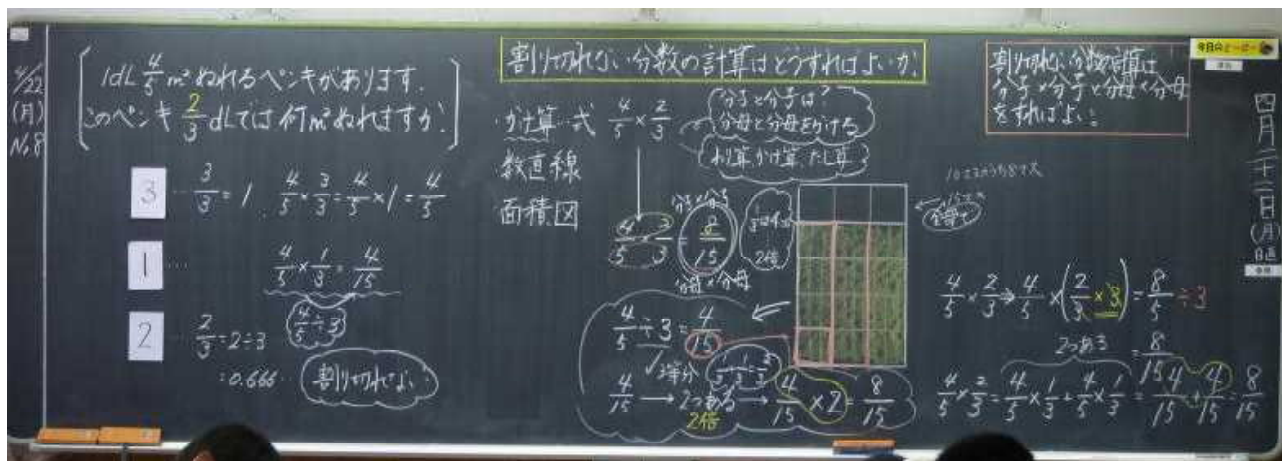 4/22
(月)
No.8
1dL 4/5 m² ぬれるペンキがあります.
このペンキ 2/3 dLでは何m²ぬれますか?
3 … 3/3 = 1. 4/5 × 3/3 = 4/5 × 1 = 4/5
1 …
4/5 × 1/3 = 4/15
4/5 ÷ 3
2 … 2/3 = 2÷3
= 0.666… 割り切れない
割り切れない分数の計算はどうすればよいか.
式 4/5 × 2/3
数直線
面積図
分子と分子は?
分母と分母をかける
わり算 かけ算 たし算
分子×分子
4/5 × 2/3 = 8/15
分母×分母
2倍
4/5 ÷ 3 = 4/15
3等分
1/3 + 1/3 = 2/3
4/15 → 2つある → 4/15 × 2 = 8/15
2倍
割り切れない分数の計算は
分子×分子と分母×分母
をすればよい!
4/5 × 2/3 ⇒ 4/5 × (2/3 × 3) = 8/5 ÷ 3
= 8/15
2つある
4/5 × 2/3 = 4/5 × 1/3 + 4/5 × 1/3 = 4/15 + 4/15 = 8/15
四月二十二日(月)
日直